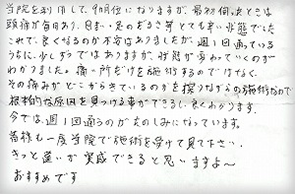 当院を利用して、9ヶ月位になりますが、最初何ったときは
頭痛が毎日あり、目まい・息のしずらさ等とても辛い状態でした
これで、良くなるのか不安はありましたが、週1回通っている
うちに、少しずつではありますが、状態が変わっていくのが
わかりました。痛い所だけを施術するのではなく、
その痛みがどこからきているのかを探りながらの施術なので
根本的な原因を見つける事ができるし、良くわかります。
今では、週1回通うのがたのしみになっています。
皆様も一度当院で施術を受けて見て下さい。
きっと違いが実感できると思いますよ〜
おすすめです